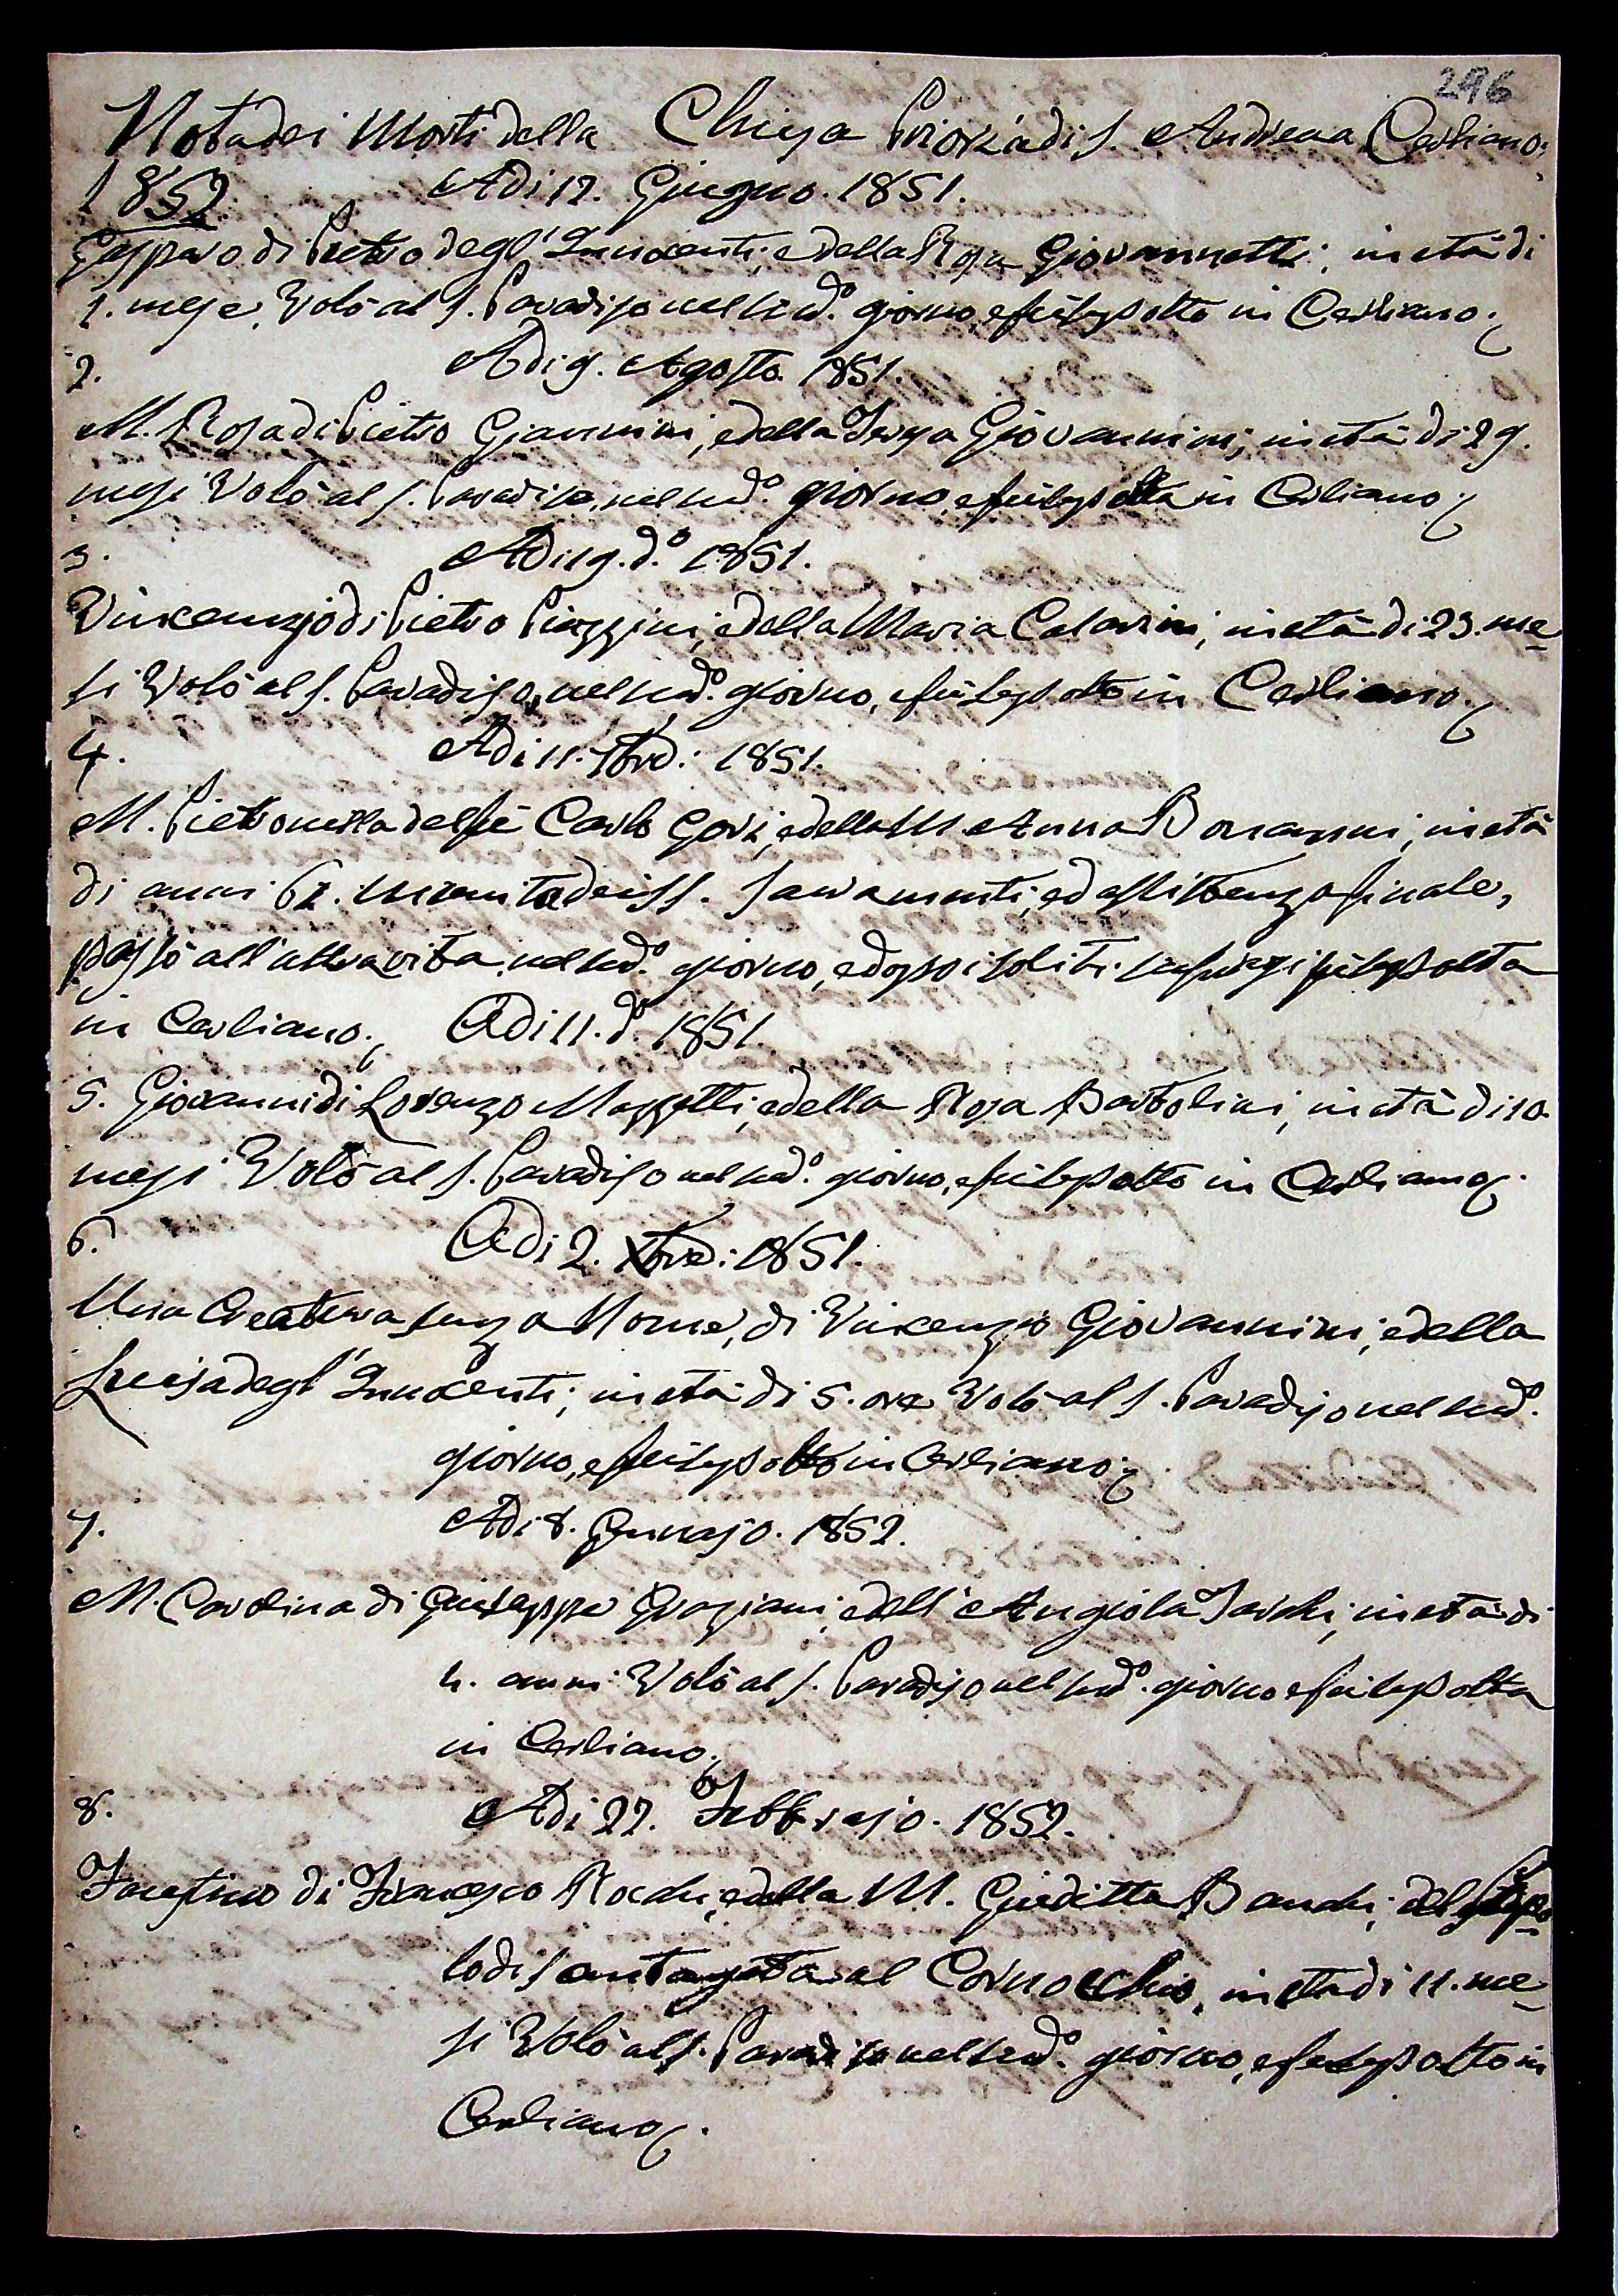 296
Nota dei Morti della Chiesa Prioria di S. Andrea a Cerliano;
1852 Adi 12. Giugno. 1851.
Gasparo di Pietro degl'Innocenti, e della Rosa Giovannetti, in età di
1. mese, Volò al S. Paradiso nel sud.º giorno, e fù sepolto in Cerliano.
2. Adi 9. Agosto 1851.
M. Rosa di Pietro Giannini, e della Teresa Giovannini, in età di 29.
mesi Volò al S. Paradiso, nel sud.º giorno, e fù sepolta in Cerliano.
3. Adi 19. d.º 1851.
Vincenzjo di Pietro Piazzini, e della Maria Calarini, in età di 23. me
si Volò al S. Paradiso, nel sud.º giorno, e fù sepolto in Cerliano.
4. Adi 11. 1851.
M. Pietronilla del fù Carlo Gori, e della M. Anna Bonanni, in età
di anni munita dei SS. Sacramenti, ed assistenza finale,
passò all'altra vita, nel sud.º giorno, e dopo i soliti suffragi fù sepolta
in Cerliano. Adi 11. d.º 1851.
5. Giovanni di Lorenzo Mazzetti, e della Rosa Bartolini, in età di 10.
mesi Volò al S. Paradiso nel sud.º giorno, e fù sepolto in Cerliano.
6. Adi 2. Xbre: 1851.
Una Creatura senza Nome, di Vincenzio Giovannini, e della
Luisa degl'Innocenti, in età di 5. ore Volò al S. Paradiso nel sud.º
giorno, e fù sepolto in Cerliano.
7. Adi 8. Gennajo. 1852.
M. Carolina di Giuseppe Graziani, e dell'Angiola Tarchi, in età di
4. anni Volò al S. Paradiso nel sud.º giorno e fù sepolta
in Cerliano.
8. Adi 22. Febbrajo. 1852.
Faustino di Francesco Rochi, e della M. Giuditta Banchi, del Popo
lo di Santagata al Cornocchio, in età di 11. me
si Volò al S. Paradiso nel sud.º giorno, e fù sepolto in
Cerliano.